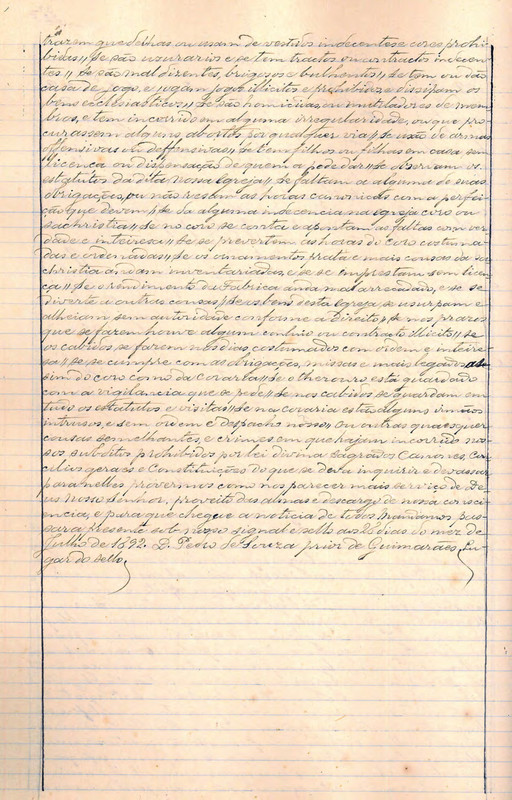 trazem guedelhas ou usam de vestidos indecentes e cores prohi-
bidos // Se são usurarios e se tem tractos ou contractos indecen-
tes // Se são mal dizentes, brigosos e bulhentos // se tem ou dão
casa de jogo, e jogam jogos illicitos e prohibidos, e dissipam os
bens ecclesiasticos // Se são homicidas, ou mutiladores de mem-
bros, e tem incorrido em alguma irregularidade, ou que pro-
curassem alguns abortos por qualquer via // se usão de armas
offensivas ou deffensivas // se tem filhos ou filhas em casa sem
licença ou dispensação de quem a pode dar // se observam os
estatutos da dita nossa Egreja // se faltam a alguma de suas
obrigações, ou não resam as horas canonicas com a perfei-
ção que devem // se ha alguma indecencia na egreja coro ou
sachristia // se no coro se conta e apontam as faltas com ver-
dade e inteiresa // se se pervertem as horas do coro costuma-
das e ordenadas // Se os ornamentos, prata e mais cousas da sa-
christia andam inventariadas, e se se emprestam sem licen-
ça // Se o rendimento da Fabrica anda mal arrendado, e se se
diverte a outras cousas // se os bens desta Egreja se usurpam e
alheiam sem autoridade conforme a Direito // se nos prazos
que se fazem houve algum conluio ou contracto illicito // se
os cabidos se fazem nos dias costumados com ordem e inteire-
sa // se se cumpre com as obrigações, missas e mais legados as-
sim do coro como da coraria // se o thesouro está guardado
com a vigilancia que se pede // se nos cabidos se guardam em
tudo os estatutos e visitas // se na coraria estão alguns irmãos
intrusos, e sem ordem e despacho nosso // ou outras quaesquer
cousas semelhantes, e crimes em que hajam incorrido nos-
sos subditos prohibidos por lei divina Sagrados Canones, Con-
cilios geraes e Constituições do que se deva inquirir e devassar
para nelles provermos como nos parecer mais serviço de De-
us Nosso Senhor, proveito das almas e descargo de nossa cons-
ciencia, e para que chegue a noticia de todos mandamos pas-
sar a presente sob nosso signal e sello aos 26 dias do mez de
Julho de 1692. D. Pedro de Souza prior de Guimarães, Lu-
gar do sello,